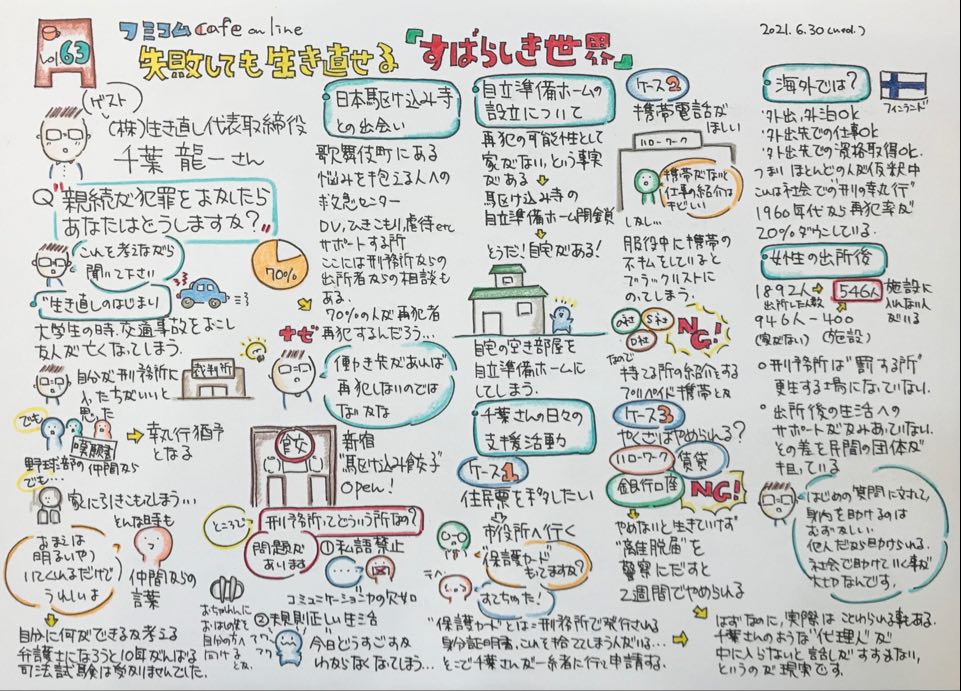 vol 63
フミコム cafe online
失敗しても生き直せる
『すばらしき世界』
2021.6.30(wed.)
ゲスト
(株)生き直し代表取締役
千葉 龍一さん
Q"親続が犯罪をおかしたら
あなたはどうしますか?"
こんを考えながら
聞いて下さい
"生き直しのはじまい
大学生の時、交通事故をおこし
友人が亡くなってしまう.
自分が刑務所に
入ったちがいいと
思った
裁判所
でも
嘆願書
野球部の仲間なら
でも…
幸丸行猶予
となる
家に引きこもてしまう…
そんな時も
おまえは
明るいやつ
いてくれるだけで
うれしいよ
仲間からの
言葉
自分に何ができるか考える
弁護士になろうと10年がんばる
司法試験は受かりませんでした.
日本駆け込み寺
との出会い
歌舞伎町にある
悩みを抱える人への
救急センター
DV,ひきこもり,虐待etc
サポートする所
ここには刑務所からの
出所者からの相談も
ある.
70%
70%の人が再犯者
再犯するんだろう…
ナゼ
働き先があれば
再犯しないのでは
ないか
餃子
新宿
"駆け込み餃子"
Open!
ところで
刑務所ってどういう所なの?
問題が
あります
①私語禁止
コミュニケーション力の欠如
おちゃわんに
おはしを
自分の方へ
向ける
とか、
②規則正しい生活
今日どうすごすか
わからなくなってしまう…
自立準備ホームの
設立について
再犯の可能性として
家がない、という事実
がある
駆け込み寺の
自立準備ホーム閉鎖
どうだ!自宅がある!
自宅の空き部屋を
自立準備ホームに
してしまう.
千葉さんの日々の
支援活動
ケース1
住民票を移したい
市役所へ行く
保護カード
もてますか?
すてちゃった!
"保護カード"とは=刑務所で発行される
身分証明書、これを捨ててしまう人が多い…
そこで千葉さんが一緒に行って申請する.
ケース2
携帯電話が
ほしい
ハローワーク
携帯がないと
仕事の紹介は
キビしい
しかし…
服役中に携帯の
不払をしていると
ブラックリストに
のってしまう.
a社
S社
D社
NG!
なので
持てる所の紹介をする
プリペイド携帯とか
ケース3
やくざはやめられる?
ハローワーク
賃貸
銀行口座
NG!
やめないと生きていけず
"離脱届"を
警察にだすと
2週間でやめられる
はずなのに、実際は ことわられる事もある.
千葉さんのような"代理人"が
中に入らないと 話しがすすまない,
というのが現実です.
海外では?
フィンランド
・外出,外泊OK
・外出先での仕事OK
・外出先での資格取得OK.
つまりほとんどの人が仮釈中
これは"社会での刑の幸丸行"
1960年代から再犯率が
20%ダウンしている.
女性の出所後
1892人
出所した人数
546人
施設に
入れない人
がいる
946人-400
(家がない) (施設)
○刑務所は"罰する所"
更生する場になっていない.
○出所後の生活への
サポートがかみあっていない.
その差を民間の団体が
担っている
はじめの質問に対れて、
身内を助けるのは
むずかしい
他人だから助けられる.
社会で助けていく事が
大切なんです.